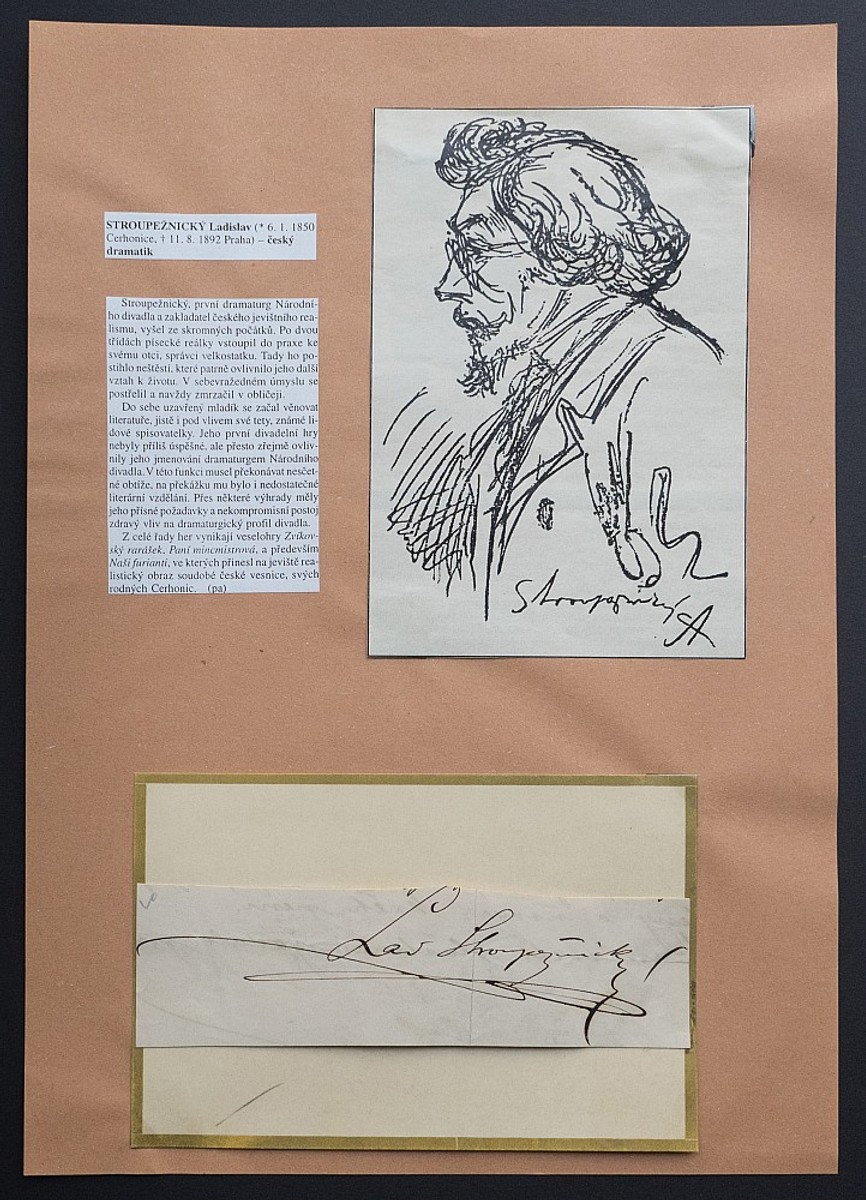 STROUPEŽNICKÝ Ladislav (* 6. 1. 1850
Cerhonice, † 11. 8. 1892 Praha) – český
dramatik
Stroupežnický, první dramaturg Národní-
ho divadla a zakladatel českého jevištního rea-
lismu, vyšel ze skromných počátků. Po dvou
třídách písecké reálky vstoupil do praxe ke
svému otci, správci velkostatku. Tady ho po-
stihlo neštěstí, které patrně ovlivnilo jeho další
vztah k životu. V sebevražedném úmyslu se
postřelil a navždy zmrzačil v obličeji.
Do sebe uzavřený mladík se začal věnovat
literatuře, jistě i pod vlivem své tety, známé li-
dové spisovatelky. Jeho první divadelní hry
nebyly příliš úspěšné, ale přesto zřejmě ovliv-
nily jeho jmenování dramaturgem Národního
divadla. V této funkci musel překonávat nesčet-
né obtíže, na překážku mu bylo i nedostatečné
literární vzdělání. Přes některé výhrady měly
jeho přísné požadavky a nekompromisní postoj
zdravý vliv na dramaturgický profil divadla.
Z celé řady her vynikají veselohry Zvíkov-
ský rarášek, Paní mincmistrová, a především
Naši furianti, ve kterých přinesl na jeviště rea-
listický obraz soudobé české vesnice, svých
rodných Cerhonic. (pa)
Stroupežnický
Lad Stroupežnický